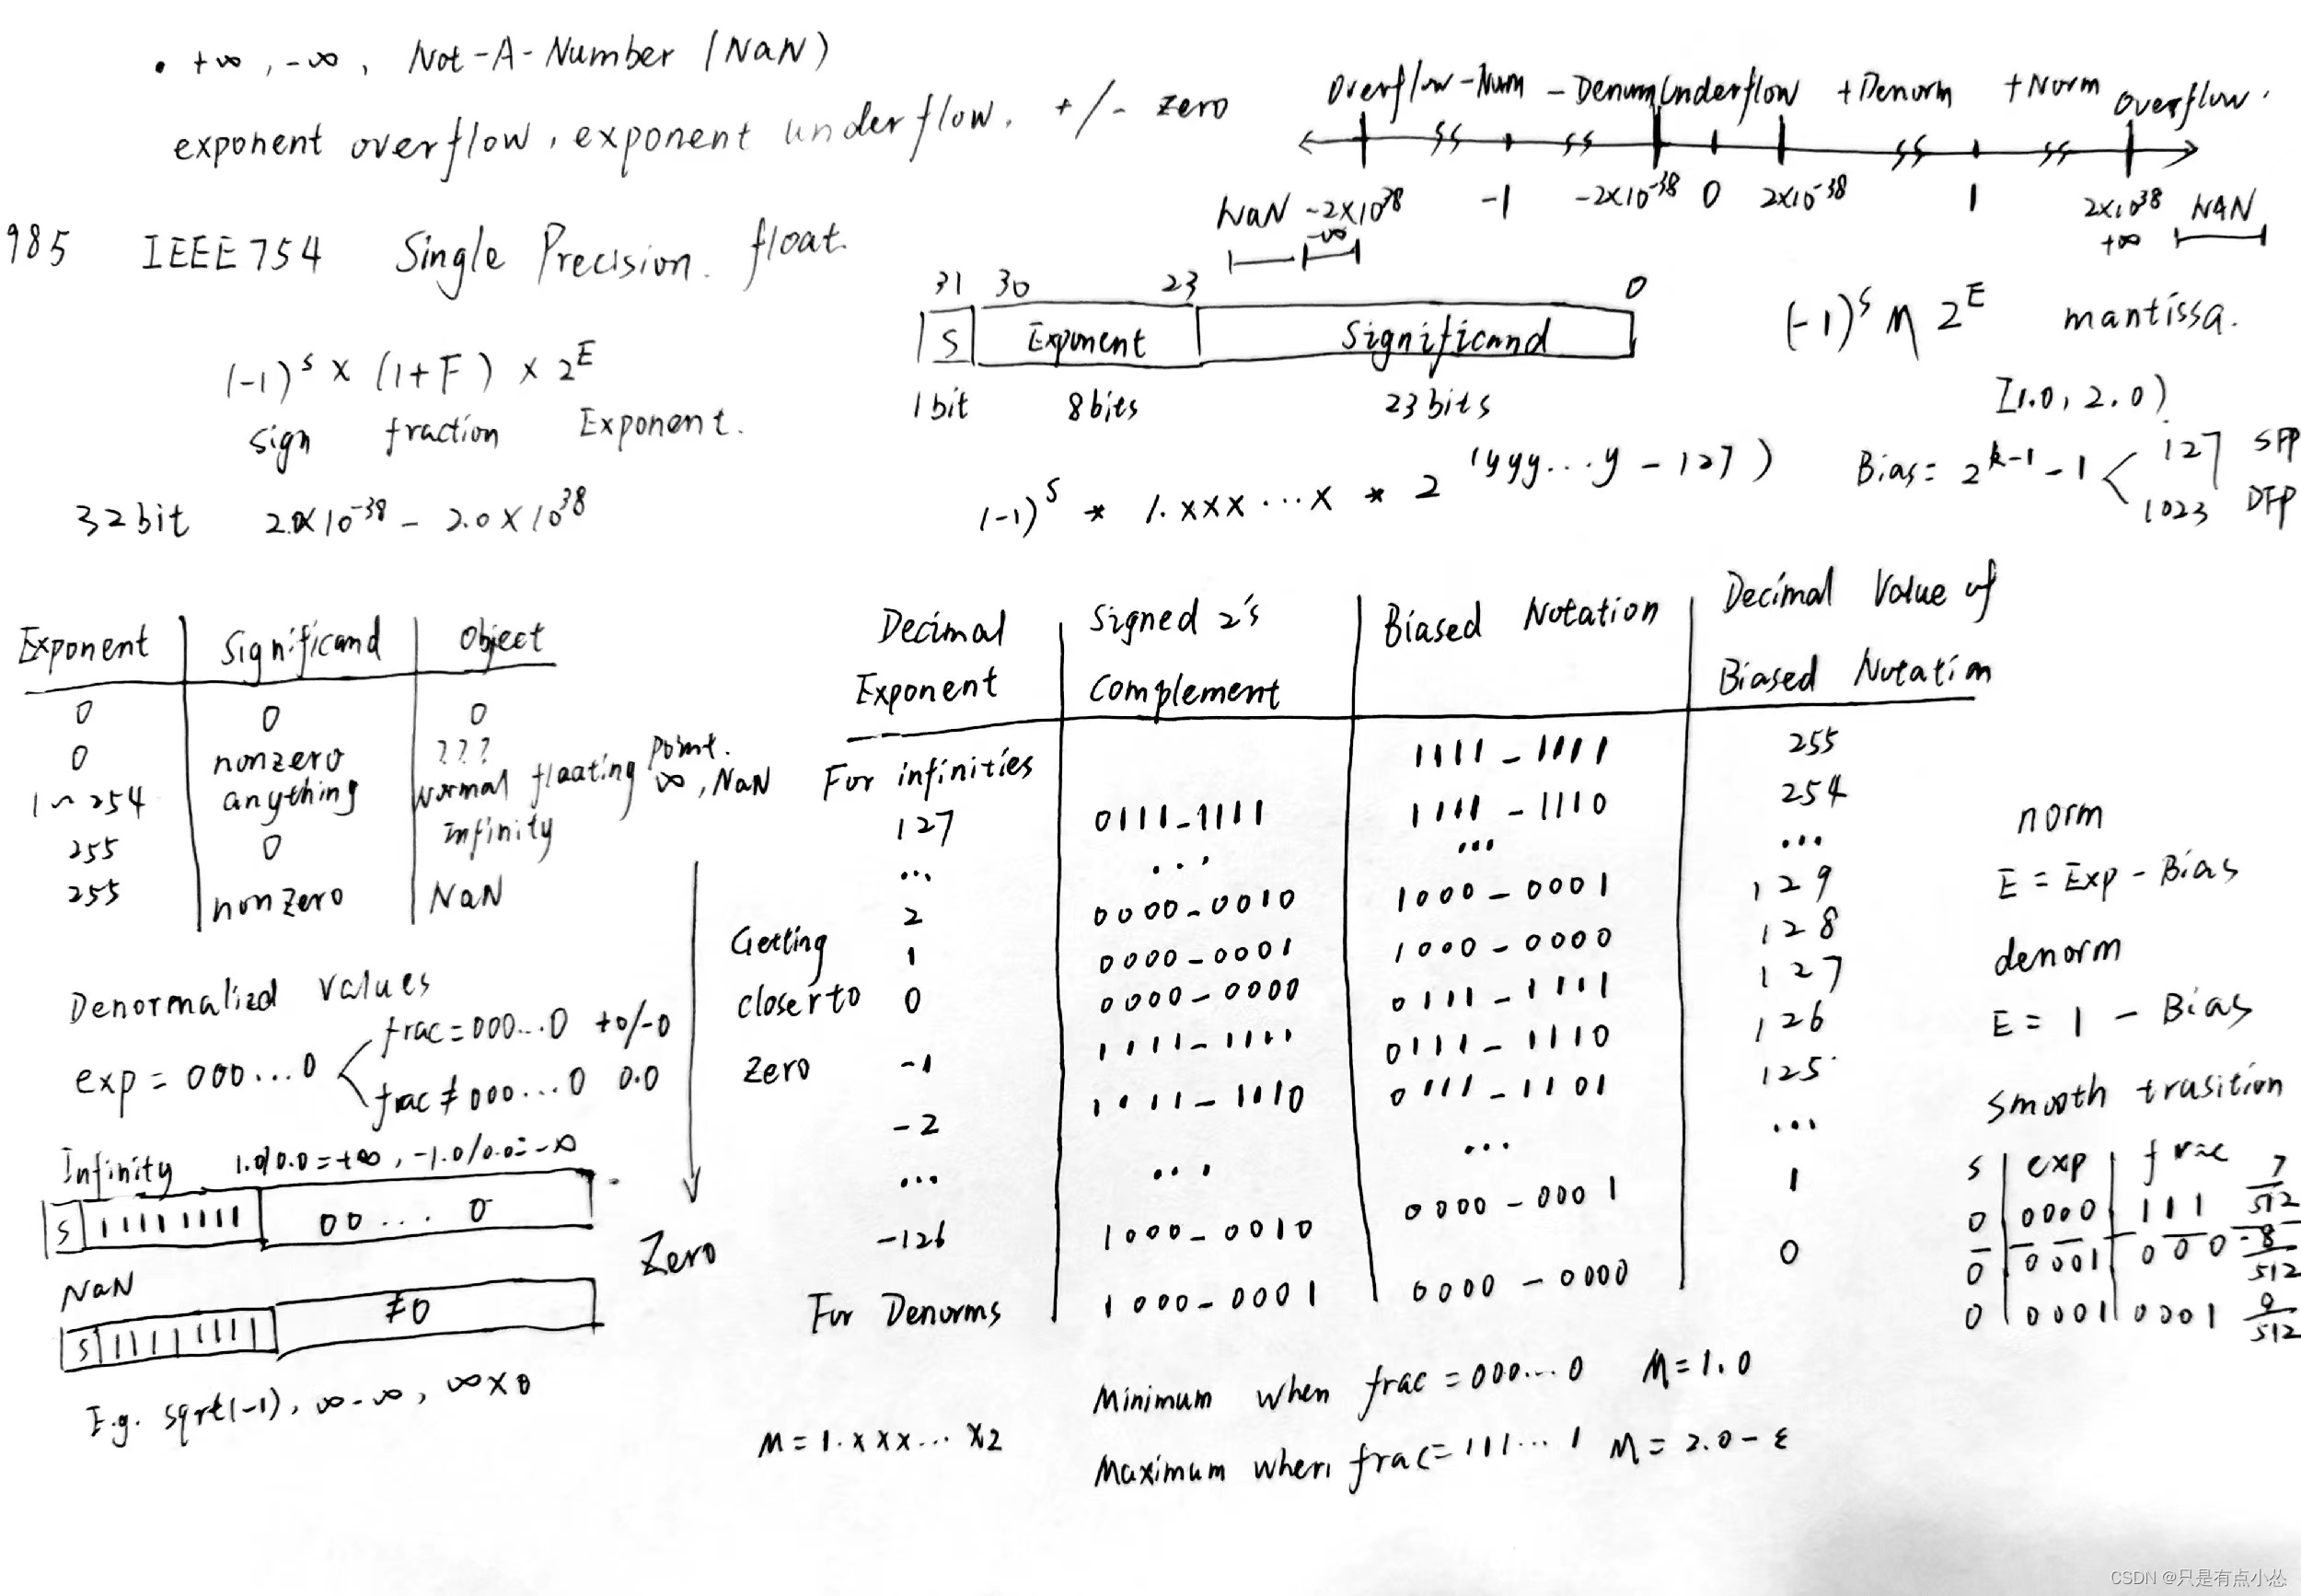 • +∞, -∞, Not-A-Number (NaN)
exponent overflow, exponent underflow, +/- zero
Overflow -Num -Denum Underflow +Denorm +Norm overflow.
-1 -2×10^-38 0 2×10^-38 1
NaN -2×10^38 2×10^38 NAN
-∞ +∞
985 IEEE754 Single Precision. float.
31 30 23 0
S Exponent Significand
1bit 8bits 23bits
(-1)^S M 2^E mantissa.
[1.0, 2.0)
(-1)^S × (1+F) × 2^E
sign fraction Exponent.
32bit 2.0×10^-38 - 2.0×10^38
(-1)^S * 1.xxx...x * 2^(yyy...y - 127)
Bias = 2^k-1 - 1 < 127 SFP
1023 DFP
Exponent Significand Object
0 0 0
0 nonzero ???
1~254 anything normal floating point.
∞, NaN
255 0 infinity
255 nonzero NaN
Denormalized values
exp = 000...0 < frac=000...0 +0/-0
frac≠000...0 0.0
Infinity 1.0/0.0=+∞, -1.0/0.0=-∞
S 11111111 00...0
NaN
S 11111111 ≠0
E.g. sqrt(-1), ∞-∞, ∞×0
Getting
closer to
zero
Zero
Decimal Signed 2's Biased Notation Decimal Value of
Exponent Complement Biased Notation
For infinities 1111-1111 255
127 0111-1111 1111-1110 254
... ... ... ...
2 0000-0010 1000-0001 129
1 0000-0001 1000-0000 128
0 0000-0000 0111-1111 127
-1 1111-1111 0111-1110 126
-2 1111-1110 0111-1101 125
... ... ... ...
-126 1000-0010 0000-0001 1
For Denorms 1000-0001 0000-0000 0
M = 1.xxx...x2
Minimum when frac = 000...0 M=1.0
Maximum when frac=111...1 M=2.0-ε
norm
E = Exp - Bias
denorm
E = 1 - Bias
smooth trasition
S exp frac
0 0000 111 7/512
0 0001 000 8/512
0 0001 0001 9/512
CSDN @只是有点小怂